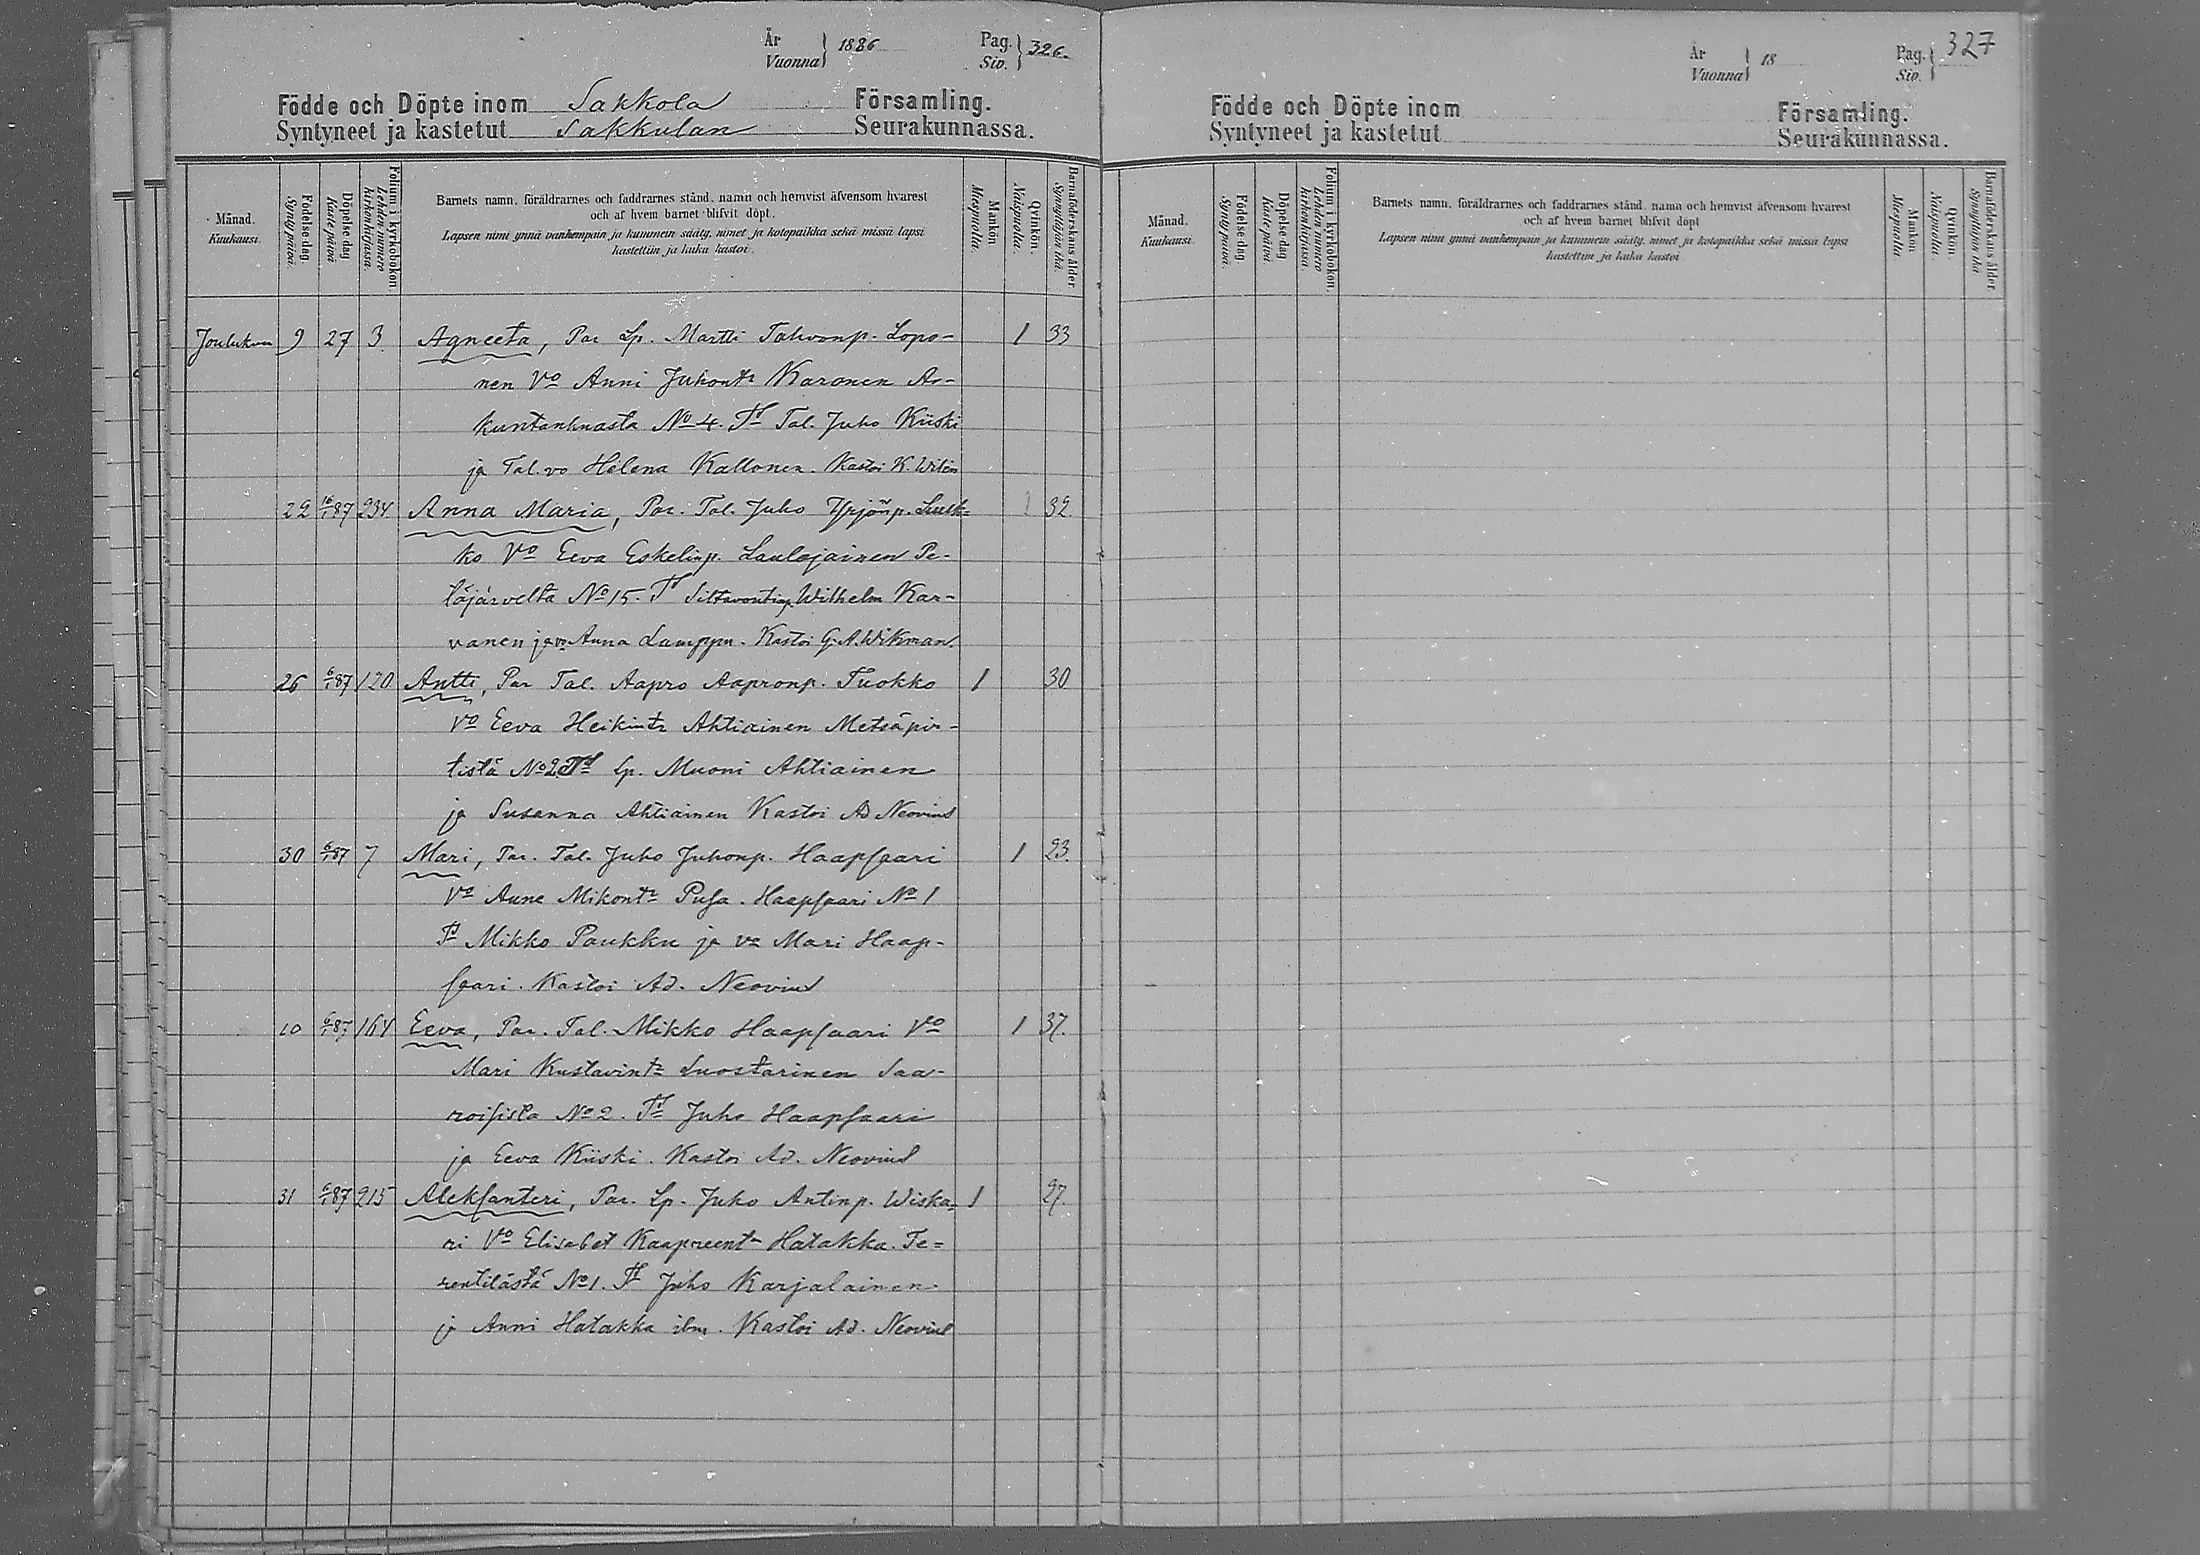 År
Vuonna 1886
Pag.
Siv. 326.
Födde och Döpte inom Sakkola Församling.
Syntyneet ja kastetut Sakkulan Seurakunnassa.
Månad.
Kuukausi.
Födelse-dag.
Synty päivä.
Döpelse-dag
Kaste päivä
Folium i kyrkoboken
Lehden numero
kirkonkirjassa.
Barnets namn, föräldrarnes och faddrarnes stånd, namn och hemvist äfvensom hvarest
och af hvem barnet blifvit döpt.
Lapsen nimi ynnä vanhempain ja kummein sääty, nimet ja kotopaikka sekä missä lapsi
kastettiin ja kuka kastoi.
Mankön
Miespuolia.
Qvinkön.
Naispuolia.
Barnaföderskans ålder
Synnyttäjän ikä.
Joulukuu 9 27 3 Agneeta, Par Lp. Martti Tahvonp. Lopo- 1 33
nen Vo Anni Juhontr Karonen
No 4. Tt Tal. Juho Kiiski
ja Tal. vo Helena Kallonen. Kastoi K. Wilén
22 16/1 87 234 Anna Maria, Par. Tal. Juho Yrjönp. Luuk= 1 32
ko Vo Eeva Eskelinp. Laulajainen Pe-
täjärveltä No 15. Tt Wilhelm Kar-
vanen ja vo Anna Lamppu. Kastoi G. A. Wikman.
26 6/1 87 120 Antti, Par Tal. Aapro Aapronp. Tuokko 1 30
Vo Eeva Heikintr Ahtiainen Metsäpir-
tistä No 2 Tt Lp. Muoni Ahtiainen
ja Susanna Ahtiainen Kastoi Ad Neovius
30 6/1 87 7 Mari, Par. Tal. Juho Juhonp. Haapsaari 1 23.
Vo Anne Mikontr Pusa. Haapsaari No 1
Tt Mikko Paukku ja vo Mari Haap-
saari. Kastoi Ad. Neovius
10 6/1 87 164 Eeva, Par. Tal. Mikko Haapsaari Vo 1 37.
Mari Kustavintr Luostarinen Saa-
roisista No 2. Tt Juho Haapsaari
ja Eeva Kiiski. Kastoi Ad. Neovius
31 6/1 87 215 Aleksanteri, Par. Lp. Juho Antinp. Wiska= 1 27.
ri Vo Elisabet Kaapreentr Hatakka. Te=
rentilästä No 1. Tt Juho Karjalainen
ja Anni Hatakka ibm. Kastoi Ad. Neovius
År
Vuonna 18
Pag.
Siv. 327
Födde och Döpte inom Församling.
Syntyneet ja kastetut Seurakunnassa.
Månad.
Kuukausi.
Födelse-dag.
Synty päivä.
Döpelse-dag
Kaste päivä
Folium i kyrkoboken.
Lehden numero
kirkonkirjassa.
Barnets namn, föräldrarnes och faddrarnes stånd, namn och hemvist äfvensom hvarest
och af hvem barnet blifvit döpt
Lapsen nimi ynnä vanhempain ja kummein sääty, nimet ja kotopaikka sekä missä lapsi
kastettiin ja kuka kastoi.
Mankön
Miespuolia.
Qvinkön
Naispuolia.
Barnaföderskans ålder
Synnyttäjän ikä